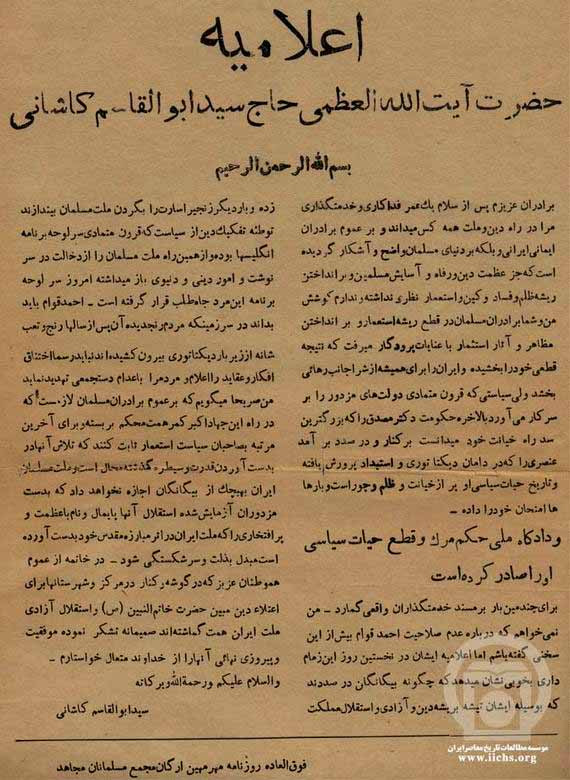 اعلامیه
حضرت آیت الله العظمی حاج سید ابوالقاسم کاشانی
بسم الله الرحمن الرحیم
برادران عزیزم پس از سلام یك عمر فداکاری و خدمتگذاری
مرا در راه دین و ملت همه کس میداند و بر عموم برادران
ایمانی ایرانی و بلکه بر دنیای مسلمان واضح و آشکار گردیده
است که جز عظمت دین و رفاه و آسایش مسلمین و بر انداختن
ریشه ظلم و فساد و کین و استعمار نظری نداشته و ندارم کوشش
من و شما برادران مسلمان در قطع ریشه استعمار و بر انداختن
مظاهر و آثار استثمار با عنایات پرودگار میرفت که نتیجه
قطعی خود را بخشیده و ایران را برای همیشه از شر اجانب رهائی
بخشد ولی سیاستی که قرون متمادی دولت‌های مزدور را بر
سر کار می آورد بالاخره حکومت دکتر مصدق را که بزرگترین
سد راه خیانت خود میدانست بر کنار و در صدد بر آمد
عنصری را که در دامان دیکتاتوری و استبداد پرورش یافته
و تاریخ حیات سیاسی او پر از خیانت و ظلم و جور است و بارها
ها امتحان خود را داده –
و دادگاه ملی حکم مرك و قطع حیات سیاسی
او را صادر کرده است
برای چندمین بار بر مسند خدمتگذاران واقعی گمارد – من
نمی‌خواهم که درباره عدم صلاحیت احمد قوام بیش از این
سخنی گفته باشم اما اعلامیه ایشان در نخستین روز این زمام
داری بخوبی نشان میدهد که چگونه بیگانگان در صددند
که بوسیله ایشان تیشه بریشه دین و آزادی و استقلال مملکت
زده و بار دیگر زنجیر اسارت را بگردن ملت مسلمان بیندازند
توطئه تفکیك دین از سیاست که قرون متمادی سر لوحه برنامه
انگلیسها بوده و از همین راه ملت مسلمان را از دخالت در سر
نوشت و امور دینی و دنیوی باز میداشته امروز سر لوحه
برنامه این مرد جاه طلب قرار گرفته است – احمد قوام باید
بداند در سرزمینکه مردم رنجدیده آن پس از سالها رنج و تعب
شانه از زیر بار دیکتاتوری بیرون کشیده اند نباید رسما اختناق
افکار و عقاید را اعلام و مردم را باعدام دستجمعی تهدید نماید
من صریحا میگویم که بر عموم برادران مسلمان لازمست که
در راه این جهاد اکبر کمر همت محکم بر بسته و برای آخرین
مرتبه بصاحبان سیاست استعمار ثابت کنند که تلاش آنها در
بدست آوردن قدرت و سیطره گذشته محال است و ملت مسلمان
ایران بهیچك از بیگانگان اجازه نخواهد داد که بدست
مزدوران آزمایش شده استقلال آنها پایمال و نام باعظمت و
پر افتخاری را که ملت ایران در اثر مبارزه مقدس خود بدست آورده
است مبدل بذلت و سرشکستگی شود – در خاتمه از عموم
هموطنان عزیز که در گوشه و کنار در مرکز و شهرستانها برای
اعتلاء دین مبین حضرت خاتم النبیین (س) و استقلال آزادی
ملت ایران همت گماشته‌اند صمیمانه تشکر نموده موفقیت
و پیروزی نهائی آنها را از خداوند متعال خواستارم –
والسلام علیکم و رحمة الله و برکاته
سید ابوالقاسم کاشانی
فوق العاده روزنامه مهر مهین ارگان مجمع مسلمانان مجاهد
موسسه مطالعات تاریخ معاصر ایران
www.iichs.org